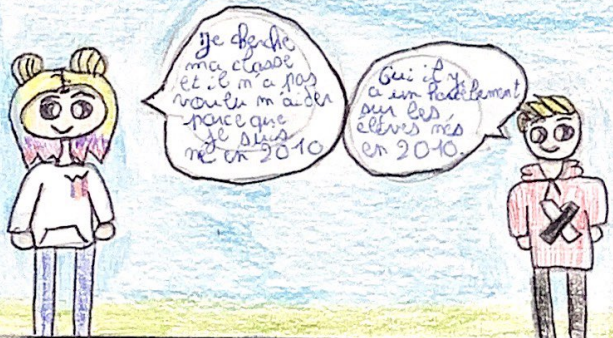 Je cherche
ma classe
et il n'a pas
voulu m'aider
parce que
je suis
né en 2010
Oui il y
a un harcèlement
sur les
élèves nés
en 2010.